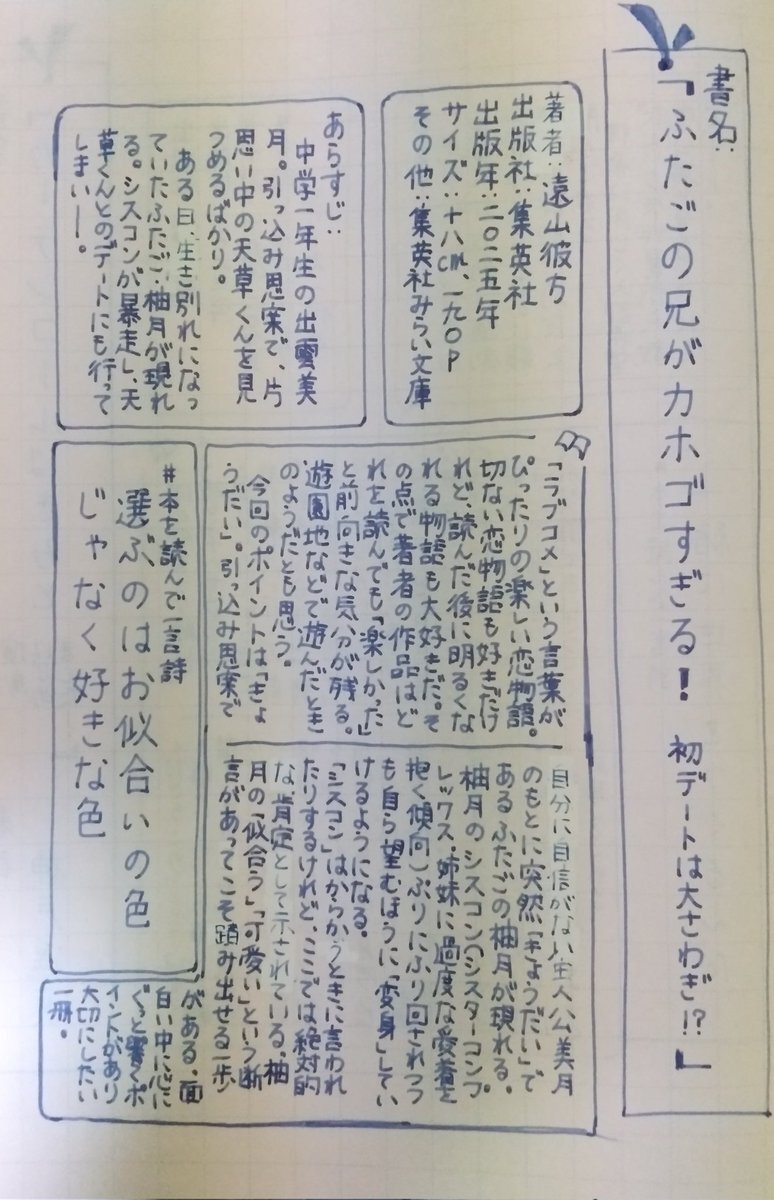 書名：
「ふたごの兄がカホゴすぎる！ 初デートは大さわぎ!?」
著者：遠山彼方
出版社：集英社
出版年：二〇二五年
サイズ：十八cm、一九〇P
その他：集英社みらい文庫
あらすじ：
中学一年生の出雲美
月。引っ込み思案で、片
思い中の天草くんを見
つめるばかり。
ある日、生き別れになっ
ていたふたご・柚月が現れ
る。シスコンが暴走し、天
草くんとのデートにも行って
しまい―。
「ラブコメ」という言葉が
ぴったりの楽しい恋物語。
切ない恋物語も好きだけ
れど、読んだ後に明るくな
れる物語も大好きだ。そ
の点で著者の作品はど
れを読んでも「楽しかった」
と前向きな気分が残る。
遊園地などで遊んだとき
のようだとも思う。
今回のポイントは「きょ
うだい」。引っ込み思案で
自分に自信がない主人公美月
のもとに突然「きょうだい」で
あるふたごの柚月が現れる。
柚月のシスコン（シスターコンプ
レックス．姉妹に過度な愛着を
抱く傾向）ぶりにふり回されつつ
も自ら望むほうに「変身」してい
けるようになる。
「シスコン」はからかうときに言われ
たりするけれど、ここでは絶対的
な、肯定として示されている。柚
月の「似合う」「可愛い」という断
言があってこそ踏み出せる一歩
がある。面
白い中に心に
ぐっと響くポ
イントがあり
大切にしたい
一冊。
#本を読んで一言詩
選ぶのはお似合いの色
じゃなく好きな色